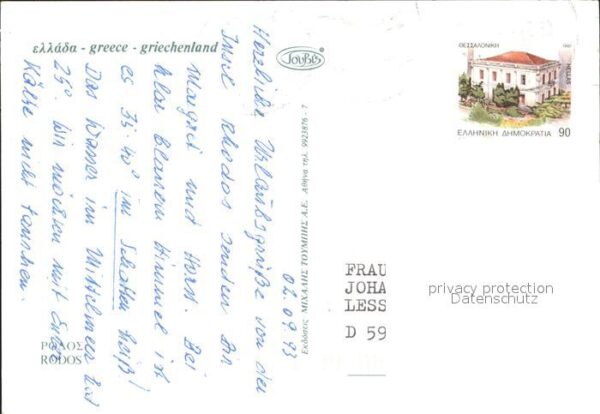 ελλάδα - greece - griechenland
Τουβής
ΘΕΣΣΑΛΟΝΙΚΗ
ΕΛΛΗΝΙΚΗ ΔΗΜΟΚΡΑΤΙΑ 90
02.09.93
Herzliche Urlaubsgrüße von der
Insel Rhodos senden Dir
Margret und Horst. Bei
klar Blauem Himmel ist
es 35-40° im Schatten heiß!
Das Wasser im Mittelmeer hat
25°. Wir möchten mit Eurer
Kälte nicht tauschen.
Εκδόσεις ΜΙΧΑΛΗΣ ΤΟΥΜΠΗΣ Α.Ε. Αθήνα τηλ. 9923876 - 7
ΡΟΔΟΣ
RODOS
FRAU
JOHA
LESS
D 59
privacy protection
Datenschutz